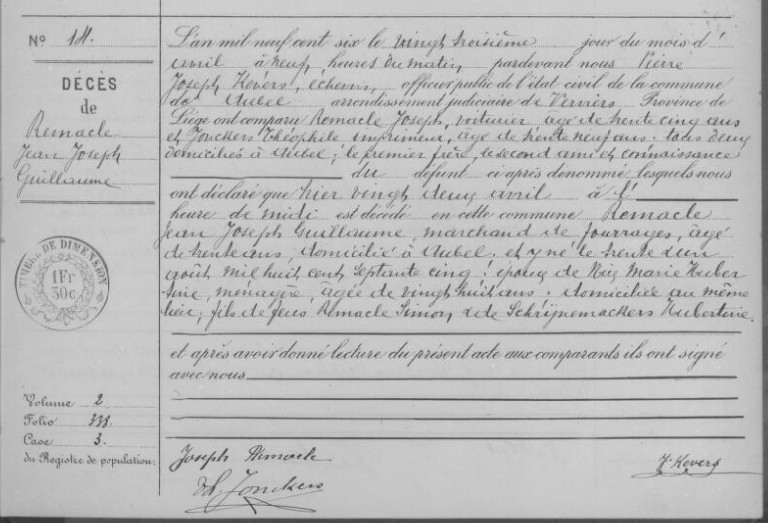 N° 14.
DÉCÈS
de
Remacle
Jean Joseph
Guillaume
TIMBRE DE DIMENSION
1 Fr
30c
Volume 2
Folio 338.
Case 3.
du Registre de population.
L'an mil neuf cent six le vingt troisième jour du mois d'
avril à neuf heures du matin, pardevant nous Pierre
Joseph Kevers, échevin, officier public de l'état civil de la commune
de Aubel arrondissement judiciaire de Verviers, Province de
Liége ont comparu Remacle Joseph, voiturier âgé de trente cinq ans
et Jonckers Théophile imprimeur, âgé de trente neuf ans. tous deux
domiciliés à Aubel; le premier frère, le second ami et connaissance
du défunt ci après dénommé lesquels nous
ont déclaré que hier vingt deux avril à l'
heure de midi est décédé en cette commune Remacle
Jean Joseph Guillaume, marchand de fourrages, âgé
de trente ans, domicilié à Aubel. et y né le trente d'un
août mil huit cent septante cinq. époux de Marie Huber
tine, ménagère, âgée de vingt huit ans. domiciliée au même
lieu, fils de feus Remacle Simon, & de Schrijnemackers Hubertine.
et après avoir donné lecture du présent acte aux comparants ils ont signé
avec nous
Joseph Remacle
Th. Jonckers
J. Kevers